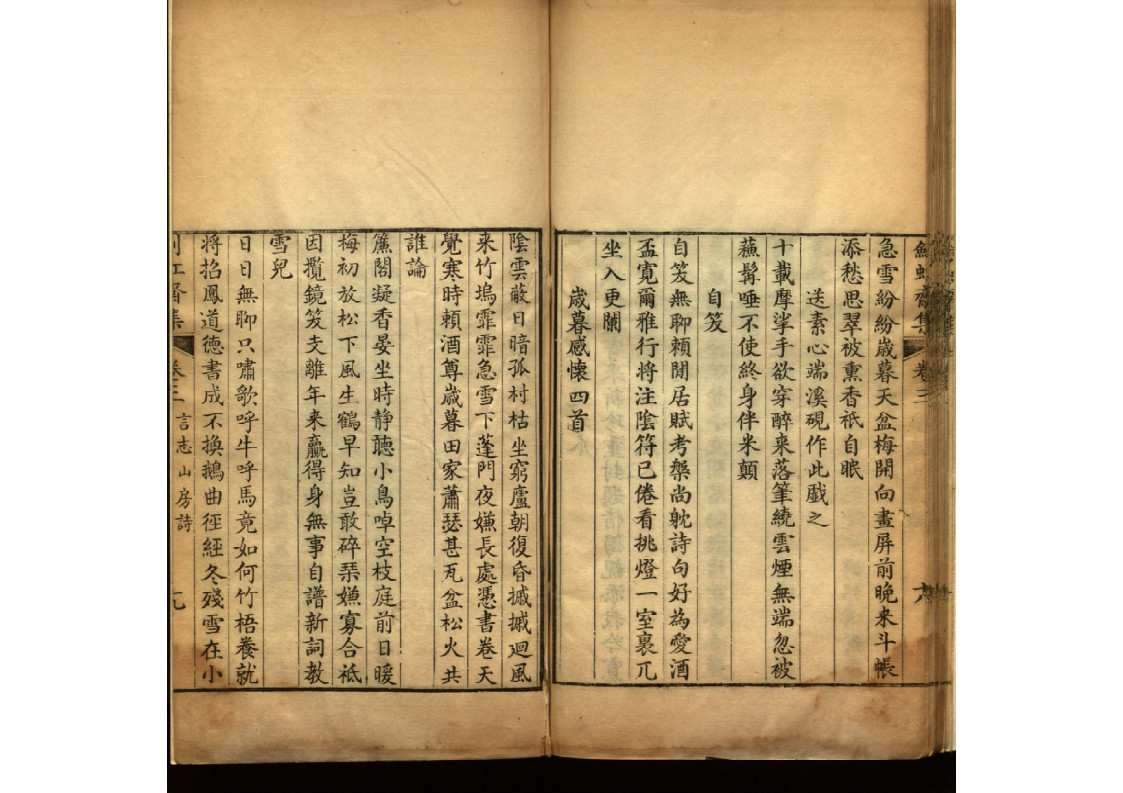 急雪紛紛歲暮天盆梅開向畫屏前晚来斗帳
添愁思翠被熏香祇自眠
送素心端溪硯作此戲之
十載摩挲手欲穿醉来落筆繞雲煙無端忽被
蘓髯唾不使終身伴米顛
自笈
自笈無聊賴閒居賦考槃尚躭詩句好為愛酒
盃寛爾雅行將注陰符已倦看挑燈一室裏兀
坐入更闌
歲暮感懷四首
陰雲蔽日暗孤村枯坐窮廬朝復昏摵摵迴風
来竹塢霏霏急雪下蓬門夜嫌長處憑書卷天
覺寒時頼酒尊歲暮田家蕭瑟甚瓦盆松火共
誰論
簾閣凝香晏坐時静聽小鳥啅空枝庭前日暖
梅初放松下風生鶴早知豈敢碎琹嫌寡合祗
因攬鏡笈支離年来贏得身無事自譜新詞教
雪兒
日日無聊只嘯歌呼牛呼馬竟如何竹梧養就
將招鳳道德書成不換鵝曲徑經冬殘雪在小
集 卷三 言志山房詩